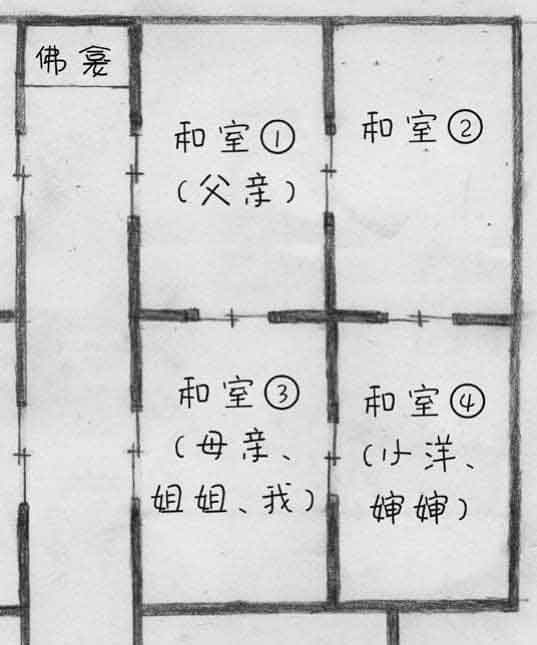 佛龛
和室①
(父亲)
和室②
和室③
(母亲、
姐姐、我)
和室④
(小洋、
婶婶)